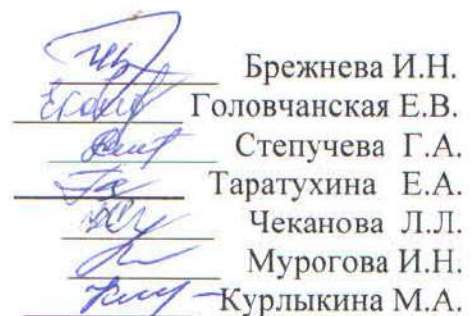 Брежнева И.Н.
Головчанская Е.В.
Степучева Г.А.
Таратухина Е.А.
Чеканова Л.Л.
Мурогова И.Н.
Курлыкина М.А.